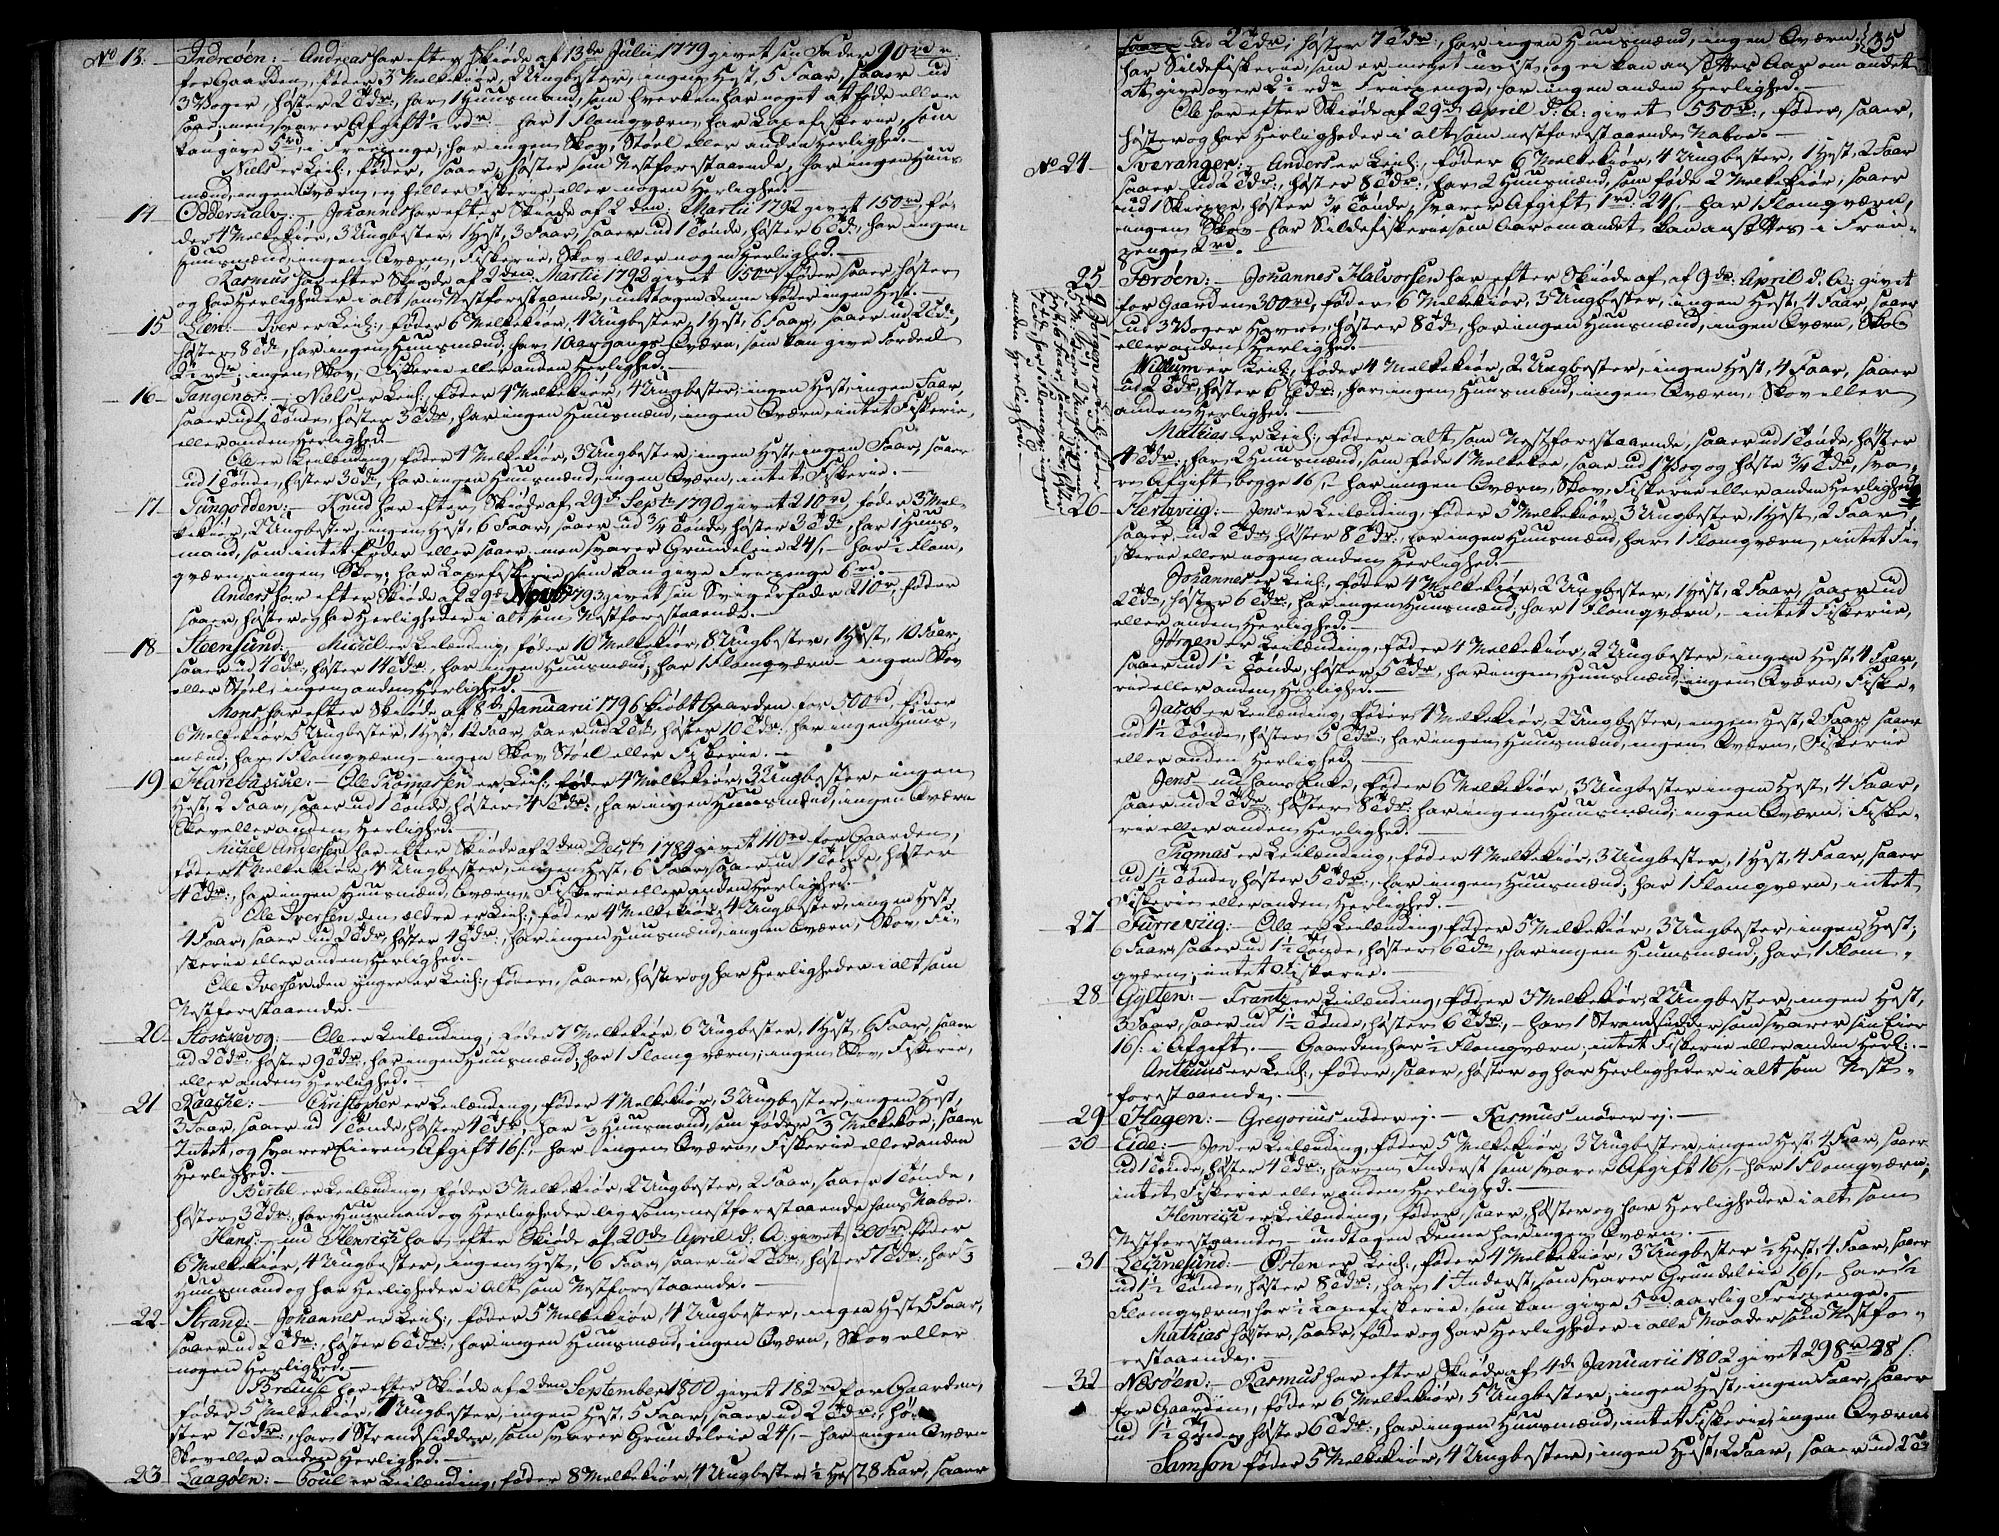 No 13. Indreöen: – Andreas har efter Skiöde af 13de Julii 1779 givet sin Fader 90 rd
for Gaarden, föder 3 Melkekiör, 2 Ungbester, ingen Hest, 5 Faar, saaer ud
3 Woger, höster 2 Tdr, har 1 Huusmand, som hverken har noget at föde eller
saae; men svarer Afgift ½ rdr har 1 Flomqværn, har Laxefiskerie, som
kan gave 5 rd i Friepenge; har ingen Skov, Stöel eller anden Herlighed. –
Niels er Leil:, föder, saaer, höster som Nestforstaaende, har ingen Huus
mænd, ingen Qværn, ej heller Fiskerie eller nogen Herlighed. –
14 Odderskalv: – Johannes har efter Skiöde af 2den Martii 1792 givet 150 rd, fö-
der 4 Melkekiör, 3 Ungbester, 1 Hest, 3 Faar, saaer ud 1 Tönde, höster 6 Tdr, har ingen
Huusmænd, ingen Qværn, Fiskerie, Skov eller nogen Herlighed. –
Rasmus har efter Skiöde af 2den Martii 1792 givet 150 rd föder saaer, höster
og har Herligheder i alt som Nestforstaaende, undtagen denne föder ingen Hest. –
15 Lien: – Iver er Leil:, föder 6 Melkekiör, 4 Ungbester, 1 Hest, 6 Faar, saaer ud 2 Tdr,
höster 8 Tdr, har ingen Huusmænd, har 1 Aargangs-Qværn, som kan give Fordeel
2½ rdr; ingen Skov, Fiskerie eller anden Herlighed. –
16 Tangenes: – Niels er Leil:, föder 4 Melkekiör, 4 Ungbester, ingen Hest, ingen Faar,
saaer ud 1 Tönde, höster 3 Tdr, har ingen Huusmænd, ingen Qværn, intet Fiskerie,
eller anden Herlighed. –
Ole er Leilænding, föder 4 Melkekiör, 3 Ungbester, ingen Hest, ingen Faar, saaer
ud 1 Tönde, höster 3 Tdr, har ingen Huusmænd, ingen Qværn, intet Fiskerie. –
17 Tungodden: – Knud har efter Skiöde af 29de Septr 1790 givet 210 rd, föder 3 Mel-
kekiör, 2 Ungbester, ingen Hest, 6 Faar, saaer ud ¾ Tönde, höster 3 Tdr, har 1 Huus-
mand, som intet föder eller saaer, men svarer Grundeleie 24 s, – har ½ Flom,
qværn, ingen Skov; har Laxefiskerie, som kan give Friepenge 6 rd. –
Anders har efter Skiöde af 29de Novbr 1793 givet sin Svigerfader 210 r, föder
saaer, höster og har Herligheder i alt som Nestforstaaende. –
18 Steensund: – Michel er Leilænding, föder 10 Melkekiör, 8 Ungbester, 1 Hest, 10 Faar,
saaer ud 4 Tdr, höster 14 Tdr, har ingen Huusmænd, har 1 Flomqværn – ingen Skov
eller Stöel, ingen anden Herlighed. –
Mons har efter Skiöde af 8de Januarii 1796 kiöbt Gaarden for 500 rd, föder
6 Melkekiör, 5 Ungbester, 1 Hest, 12 Faar, saaer ud 2 Tdr, höster 10 Tdr, har ingen Huus-
mænd, har 1 Flomqværn – ingen Skov, Stöel eller Fiskerie. –
19 Harebakke: – Ole Thomassen er Leil:, föder 4 Melkekiör, 3 Ungbester, ingen
Hest, 2 Faar, saaer ud 1 Tönde, höster 4 Tdr, har ingen Huusmænd, ingen Qværn
Skov eller anden Herlighed. –
Michel Andersen har efter Skiöde af 2den Decbr 1789 givet 110 rd for Gaarden,
föder 4 Melkekiör, 4 Ungbester, ingen Hest, 6 Faar, saaer ud 1 Tönde, höster
4 Tdr, har ingen Huusmænd, Qværn, Fiskerie eller anden Herlighed. –
Ole Iversen den ældre er Leil:, föder 4 Melkekiör, 4 Ungbester, ingen Hest,
4 Faar, saaer ud 2 Tdr, höster 4 Tdr, har ingen Huusmænd, ingen Qværn, Skov, Fi-
skerie eller anden Herlighed. –
Ole Iversen den yngre er Leil:, föder, saaer, höster og har Herligheder i alt som
Nestforstaaende. –
20 Storkevog: – Ole er Leilænding, föder 7 Melkekiör, 6 Ungbester, 1 Hest, 6 Faar, saaer
ud 2 Tdr, höster 9 Tdr, har ingen Huusmænd; har 1 Flomqværn, ingen Skov, Fiskerie,
eller anden Herlighed. –
21 Raache: – Christopher er Leilænding, föder 4 Melkekiör, 3 Ungbester, ingen Hest,
3 Faar, saaer ud 1 Tönde, höster 4 Tdr, har ⅓ Huusmand, som föder ⅓ Melkekoe, saaer
Intet, og svarer Eieren Afgift 16 s, – har ingen Qværn, Fiskerie eller anden
Herlighed. –
Bertel er Leilænding, föder 3 Melkekiör, 2 Ungbester, 2 Faar, saaer 1 Tönde,
höster 3 Tdr, har Huusmand og Herligheder lig som nestforstaaende hans Naboe. –
Hans: – nu Henrich har efter Skiöde af 20de April d. A. givet 300 rd, föder
6 Melkekiör, 4 Ungbester, ingen Hest, 6 Faar, saaer ud 2 Tdr, höster 7 Tdr, har ⅓
Huusmand og har Herligheder i Alt som Nestforstaaende. –
22 Strand: – Johannes er Leil:, föder 5 Melkekiör, 4 Ungbester, ingen Hest, 5 Faar,
saaer ud 2 Tdr, höster 6 Tdr, har ingen Huusmænd, ingen Qværn, Skov eller
nogen Herlighed. –
har efter Skiöde af 2den September 1800 givet 182 rd for Gaarden,
föder 5 Melkekiör, 4 Ungbester, ingen Hest, 5 Faar, saaer ud 2 Tdr, hö-
ster 7 Tdr, har 1 Strandsidder, som svarer Grundeleie 24 s, – har ingen Qværn
Skov eller anden Herlighed. –
23 Laagöen: – Poul er Leilænding, föder 8 Melkekiör, 4 Ungbester, ½ Hest, 8 Faar, saaer
35
ud 2 Tdr, höster 7 Tdr, har ingen Huusmænd, ingen Qværn,
har Sildefiskerie, som er meget uvist, og ei kan ansættes Aar om andet
at give over 2½ rdr Friepenge, har ingen anden Herlighed. –
Ole har efter Skiöde af 29de April d: A: givet 550 rd, föder, saaer,
höster og har Herligheder i alt som nestforstaaende Naboe. –
No 24 Tveranger: – Anders er Leil:, föder 6 Melkekiör, 4 Ungbester, 1 Hest, 2 Faar
saaer ud 2 Tdr, höster 8 Tdr, har 2 Huusmænd, som föde 2 Melkekiör, saaer
ud 1 Skieppe, höster ¾ Tönde, svarer Afgift 1 rd 24 s, – har 1 Flomqværn,
ingen Skov – har Sildefiskerie som Aar om andet kan ansættes i Frie-
penge 2 rd. –
25 Færöen: – Johannes Halvorsen har efter Skiöde af 9de April d. A. givet
for Gaarden 300 rd, föder 6 Melkekiör, 3 Ungbester, ingen Hest, 4 Faar, saaer
ud 3 Woger Havre, höster 8 Tdr, har ingen Huusmænd, ingen Qværn, Skov
eller anden Herlighed. –
Willum er Leil:, föder 4 Melkekiör, 2 Ungbester, ingen Hest, 4 Faar, saaer
ud 2 Tdr, höster 6 Tdr, har ingen Huusmænd, ingen Qværn, Skov eller
anden Herlighed. –
Mathias er Leil:, föder i alt som Nestforstaaende, saaer ud 1 Tönde, höster
4 Tdr, har 2 Huusmænd, som föde 1 Melkekoe, saae ud 1 Wog og höste ¾ Tdr, sva-
re Afgift begge 16 s, – har ingen Qværn, Skov, Fiskerie eller anden Herlighed.
26 Hertzviig: – Jens er Leilænding, föder 5 Melkekiör, 3 Ungbester, 1 Hest, 2 Faar,
saaer ud 2 Tdr, höster 8 Tdr, har ingen Huusmænd, har 1 Flomqværn, intet Fi-
skerie eller nogen anden Herlighed. –
Johannes er Leil:, föder 4 Melkekiör, 2 Ungbester, 1 Hest, 2 Faar, saaer ud
2 Tdr, höster 6 Tdr, har ingen Huusmænd, har 1 Flomqværn, – intet Fiskerie,
eller anden Herlighed. –
Jörgen er Leilænding, föder 4 Melkekiör, 2 Ungbester, ingen Hest, 4 Faar,
saaer ud 1½ Tönde, höster 5 Tdr, har ingen Huusmænd, ingen Qværn, Fiske-
rie eller anden Herlighed. –
Jacob er Leilænding, föder 4 Melkekiör, 2 Ungbester, ingen Hest, 2 Faar, saaer
ud 1½ Tönde, höster 5 Tdr, har ingen Huusmænd, ingen Qværn, Fiskerie
eller anden Herlighed –
Jens – nu hans Enke, föder 6 Melkekiör, 3 Ungbester, ingen Hest, 4 Faar,
saaer ud 2 Tdr, höster 8 Tdr, har ingen Huusmænd, ingen Qværn, Fiske-
rie eller anden Herlighed. –
Thomas er Leilænding, föder 4 Melkekiör, 3 Ungbester, 1 Hest, 4 Faar, saaer
ud 1½ Tönde, höster 5 Tdr, har ingen Huusmænd, har 1 Flomqværn, intet
Fiskerie eller anden Herlighed. –
27 Furreviig: – Ole er Leilænding, föder 5 Melkekiör, 3 Ungbester, ingen Hest,
6 Faar, saaer ud 1½ Tönde, höster 6 Tdr, har ingen Huusmænd, har 1 Flom-
qværn, intet Fiskerie. –
28 Gylten: – Frantz er Leilænding, föder 3 Melkekiör, 2 Ungbester, ingen Hest,
3 Faar, saaer ud 1½ Tönde, höster 6 Tdr, – har 1 Strandsidder som svarer sin Eier
16 s: i Afgift. – Gaarden har ½ Flomqværn, intet Fiskerie eller anden Herl:. –
Anthuus er Leil:, föder, saaer, höster og har Herligheder i alt som Nest-
forstaaende. –
29 Hagen: – Gregorius möder ej. – Rasmus möder ej. –
30 Eide: – Jon er Leilænding, föder 5 Melkekiör, 3 Ungbester, ingen Hest, 4 Faar, saaer
ud 1 Tönde, höster 4 Tdr, har en Inderst som svarer Afgift 16 s, – har 1 Flomqværn,
intet Fiskerie eller anden Herlighed. –
Henrich er Leilænding, föder, saaer, höster og har Herligheder i alt som
Nestforstaaende – undtagen denne har ingen Qværn. –
31 Lechnesund: – Østen er Leil:, föder 4 Melkekiör, 3 Ungbester ½ Hest, 4 Faar, saaer
ud 1½ Tönde, höster 8 Tdr, har 1 Inderst, som svarer Grundeleie 16 s, – har ½
Flomqværn, har ½ Laxefiskerie, som kan give 5 rd aarlig Friepenge. –
Mathias höster, saaer, föder og har Herligheder i alle Maader som Nestfo-
restaaende. –
32 Næsöen: – Rasmus har efter Skiöde af 4de Januarii 1802 givet 298 rd 48 s:
for Gaarden, föder 6 Melkekiör, 5 Ungbester, ingen Hest, ingen Faar, saaer
ud 1½ Tönde, höster 6 Tdr, har ingen Huusmænd, intet Fiskerie, ingen Qværn
Samson föder 5 Melkekiör, 4 Ungbester, ingen Hest, 2 Faar, saaer ud 2 Tdr